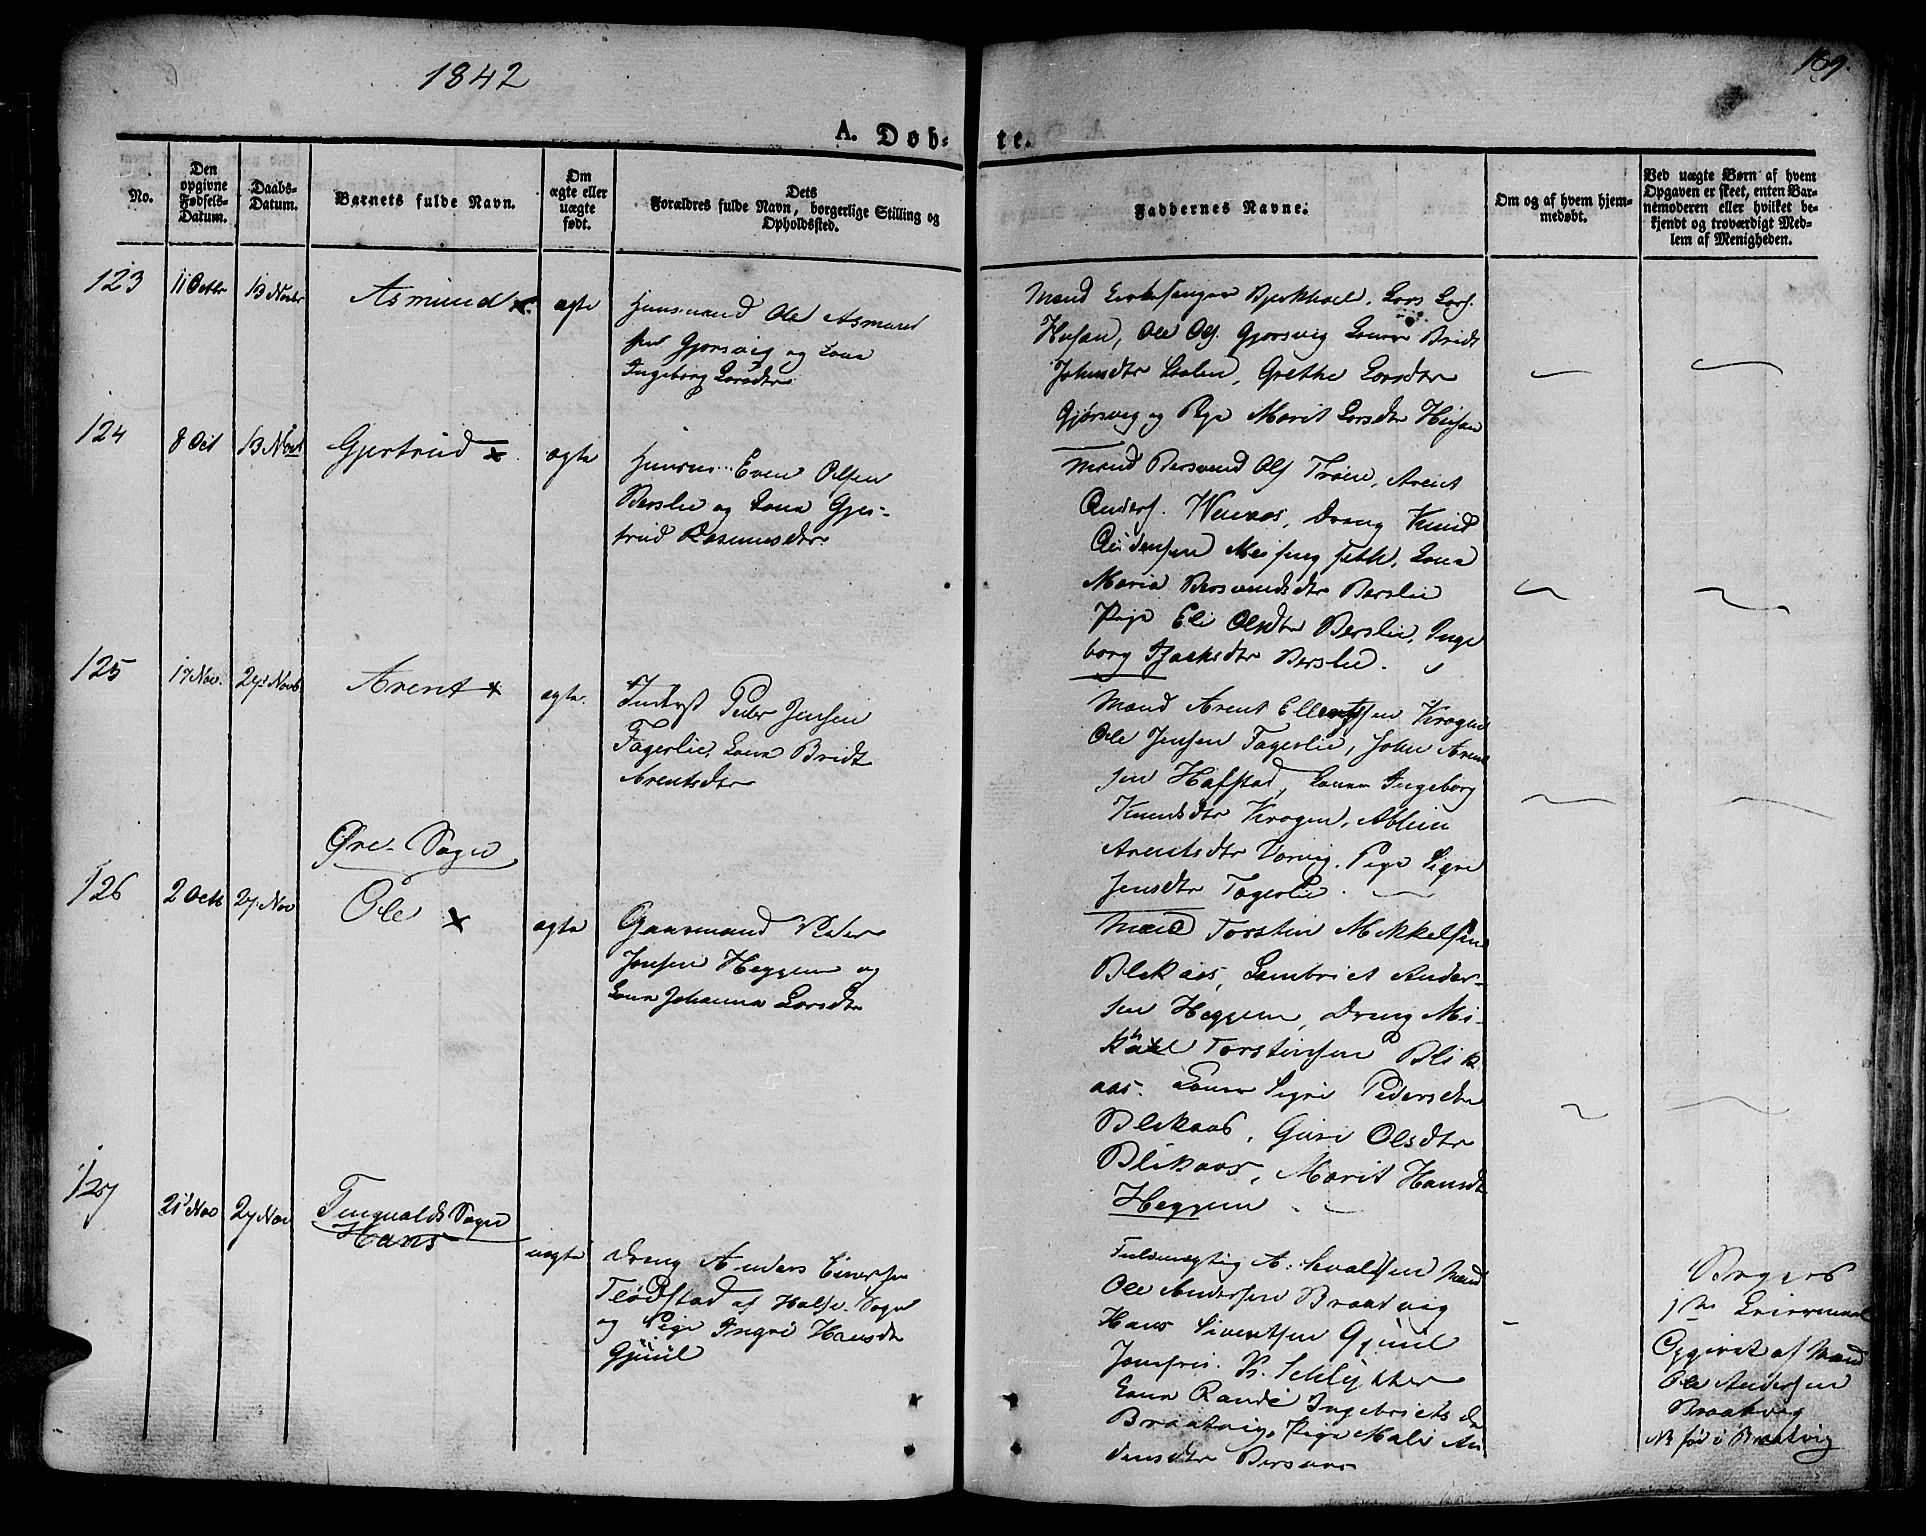 1842
139.
A. Døb-
te.
No.
Den
opgivne
Fødsels-
Datum.
Daabs-
Datum.
Barnets fulde Navn.
Om
ægte eller
uægte
født.
Dets
Forældres fulde Navn, borgerlige Stilling og
Opholdssted.
Faddernes Navne.
Om og af hvem hjem-
medøbt.
Ved uægte Børn af hvem
Opgaven er skeet, enten Bar-
nemoderen eller hvilket be-
kjendt og troværdigt Med-
lem af Menigheden.
123
11 Octbr
13 Novbr
Asmund
ægte
Huusmand Ole Asmund
sen Gjørsvig og Kona
Ingeborg Larsdtr
Mand Bjerkhoel, Lars Lars.
Husan, Ole Ols. Gjørsvig Koner Bridt
Johnsdtr Grethe Larsdtr
Gjørsvig og Pige Marit Larsdtr Husan
124
8 Oct
13 Novb
Gjertrud
ægte
Huusm. Even Olsen
Berslie og Kona Gjer-
trud Rasmusdtr
Mand Bersvend Ols Trøen, Arent
Anders. Wenaas, Dreng Knud
Meisingseth, Kona
Maria Bersvendsdtr Berslie
Pige Eli Olsdtr Berslie, Inge
borg Isachsdtr Berslie.
125
17 Nov.
27 Novb
Arent
ægte.
Inderst Peder Jensen
Fagerlie, Kona Bridt
Arentsdtr
Mand Arent Ellentsen Krogen
Ole Jensen Fagerlie, John Arent
sen Hafstad, Koner Ingeborg
Knudsdtr Krogen,
Arentsdtr Pige Sigre
Jensdtr Fagerlie.
Øre-Sogn
126
2 Octb
27 Nov
Ole
ægte
Gaarmand Peder
Jonsen Heggem og
Kona Johanna Larsdtr
Mand Torstin Mikkelsen
Blekaas, Lambriet Ander-
sen Heggem, Dreng Mi-
kael Torstinsen Blik
aas. Koner Sigri Pedersdtr
Blikaas, Guri Olsdtr
Blikaas, Marit Hansdtr
Heggem
127
21 Nov
27 Nov
Tingvolds Sogn
Hans
uægte
Dreng Anders Einersen
Flødstad af Halse Sogn
og Pige Ingri Hansdtr
Gjüül
Fuldmægtig A. Mand
Ole Andersen Braatvig
Hans Sivertsen Gjüül
Jomfru K. Schlytter
Kona Randi Ingebriets dtr
Braatvig, Pige Mali An
densdtr Bersaas
Begges
1ste Leiermaal
Opgivet af Mand
Ole Andersen
Braatvig
NB fød i Braatvig